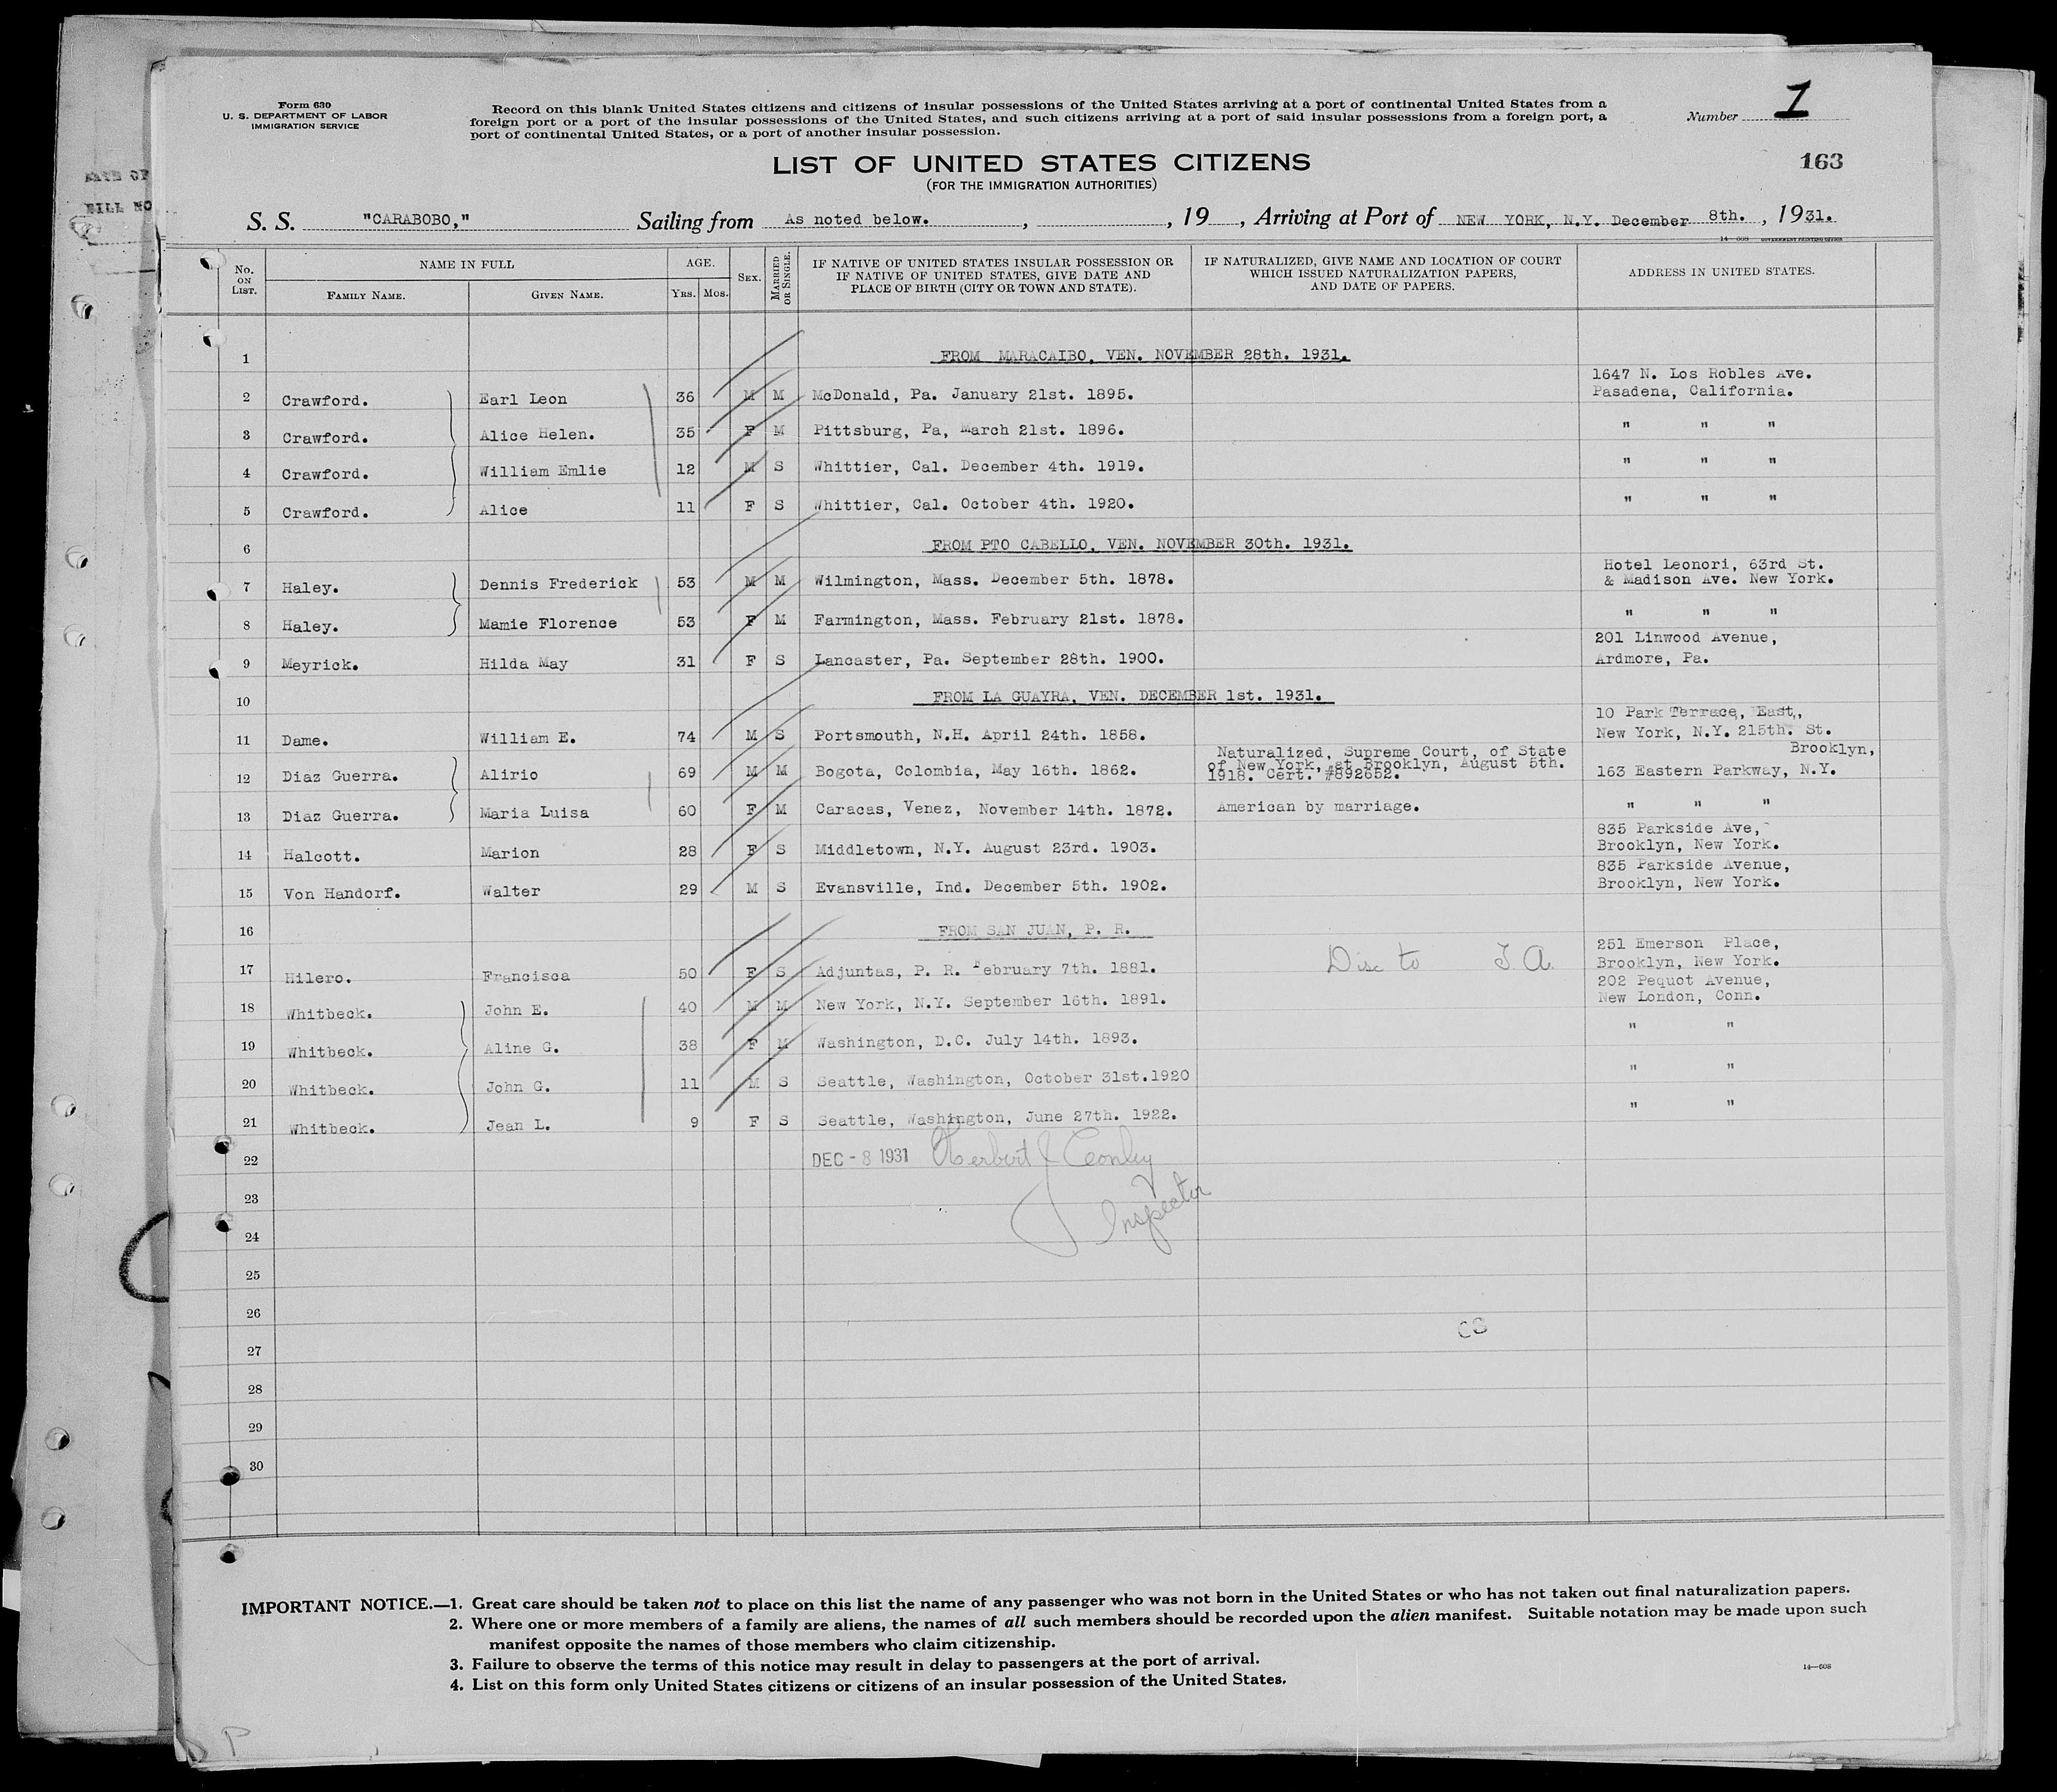 Form 630
U. S. DEPARTMENT OF LABOR
IMMIGRATION SERVICE
Record on this blank United States citizens and citizens of insular possessions of the United States arriving at a port of continental United States from a
foreign port or a port of the insular possessions of the United States, and such citizens arriving at a port of said insular possessions from a foreign port, a
port of continental United States, or a port of another insular possession.
Number 1
LIST OF UNITED STATES CITIZENS
163
(FOR THE IMMIGRATION AUTHORITIES)
S. S. "CARABOBO," Sailing from As noted below. , , 19 , Arriving at Port of NEW YORK, N.Y. December 8th. , 1931.
No. ON LIST. NAME IN FULL FAMILY NAME. GIVEN NAME. AGE. YRS. MOS. SEX. MARRIED OR SINGLE. IF NATIVE OF UNITED STATES INSULAR POSSESSION OR IF NATIVE OF UNITED STATES, GIVE DATE AND PLACE OF BIRTH (CITY OR TOWN AND STATE). IF NATURALIZED, GIVE NAME AND LOCATION OF COURT WHICH ISSUED NATURALIZATION PAPERS, AND DATE OF PAPERS. ADDRESS IN UNITED STATES.
1 FROM MARACAIBO, VEN. NOVEMBER 28th. 1931.
2 Crawford. Earl Leon 36 M M McDonald, Pa. January 21st. 1895. 1647 N. Los Robles Ave. Pasadena, California.
3 Crawford. Alice Helen. 35 F M Pittsburg, Pa, March 21st. 1896. " " "
4 Crawford. William Emlie 12 M S Whittier, Cal. December 4th. 1919. " " "
5 Crawford. Alice 11 F S Whittier, Cal. October 4th. 1920. " " "
6 FROM PTO CABELLO, VEN. NOVEMBER 30th. 1931.
7 Haley. Dennis Frederick 53 M M Wilmington, Mass. December 5th. 1878. Hotel Leonori, 63rd St. & Madison Ave. New York.
8 Haley. Mamie Florence 53 F M Farmington, Mass. February 21st. 1878. " " "
9 Meyrick. Hilda May 31 F S Lancaster, Pa. September 28th. 1900. 201 Linwood Avenue, Ardmore, Pa.
10 FROM LA GUAYRA, VEN. DECEMBER 1st. 1931.
11 Dame. William E. 74 M S Portsmouth, N.H. April 24th. 1858. 10 Park Terrace, East, New York, N.Y. 215th. St.
12 Diaz Guerra. Alirio 69 M M Bogota, Colombia, May 16th. 1862. Naturalized, Supreme Court, of State of New York, at Brooklyn, August 5th. 1918. Cert. #892652. Brooklyn, 163 Eastern Parkway, N.Y.
13 Diaz Guerra. Maria Luisa 60 F M Caracas, Venez, November 14th. 1872. American by marriage. " " "
14 Halcott. Marion 28 F S Middletown, N.Y. August 23rd. 1903. 835 Parkside Ave, Brooklyn, New York.
15 Von Handorf. Walter 29 M S Evansville, Ind. December 5th. 1902. 835 Parkside Avenue, Brooklyn, New York.
16 FROM SAN JUAN, P. R.
17 Hilero. Francisca 50 F S Adjuntas, P. R. February 7th. 1881. Disc to T. A. 251 Emerson Place, Brooklyn, New York.
18 Whitbeck. John E. 40 M M New York, N.Y. September 16th. 1891. 202 Pequot Avenue, New London, Conn.
19 Whitbeck. Aline G. 38 F M Washington, D.C. July 14th. 1893. " "
20 Whitbeck. John G. 11 M S Seattle, Washington, October 31st.1920 " "
21 Whitbeck. Jean L. 9 F S Seattle, Washington, June 27th. 1922. " "
22 DEC - 8 1931 Herbert J Conley
23 Inspector
24
25
26
27
28
29
30
IMPORTANT NOTICE.—1. Great care should be taken not to place on this list the name of any passenger who was not born in the United States or who has not taken out final naturalization papers.
2. Where one or more members of a family are aliens, the names of all such members should be recorded upon the alien manifest. Suitable notation may be made upon such
manifest opposite the names of those members who claim citizenship.
3. Failure to observe the terms of this notice may result in delay to passengers at the port of arrival.
14—608
4. List on this form only United States citizens or citizens of an insular possession of the United States.